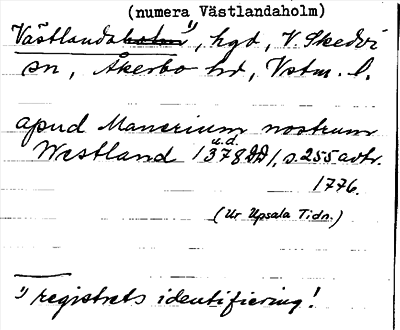 (numera Västlandaholm)
Västlandaholm 1), hgd, V. Skedvi
sn, Åkerbo hd, Vstm. l.
apud Manerium nostrum
u.d.
Westland 1378 /, s. 255 avtr.
1776.
(Ur Upsala Tidn.)
1) registrets identifiering!